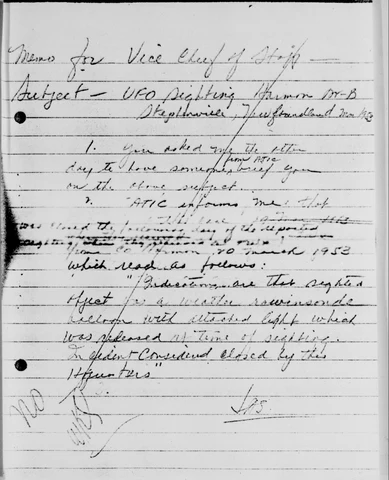 Memo for Vice Chief of Staff —
Subject — UFO Sighting Harmon
Stephenville, Newfoundland
1. You asked me the other
from ATIC
day to have someone brief you
on the above subject.
2. ATIC informs me that
this case
was closed the following day of the reported
sighting
Harmon 20 March 1953
which read as follows:
"Indications are that sighted
object was a weather rawinsonde
balloon with attached light which
was released at time of sighting.
Incident Considered closed by this
Hqurters"
NO